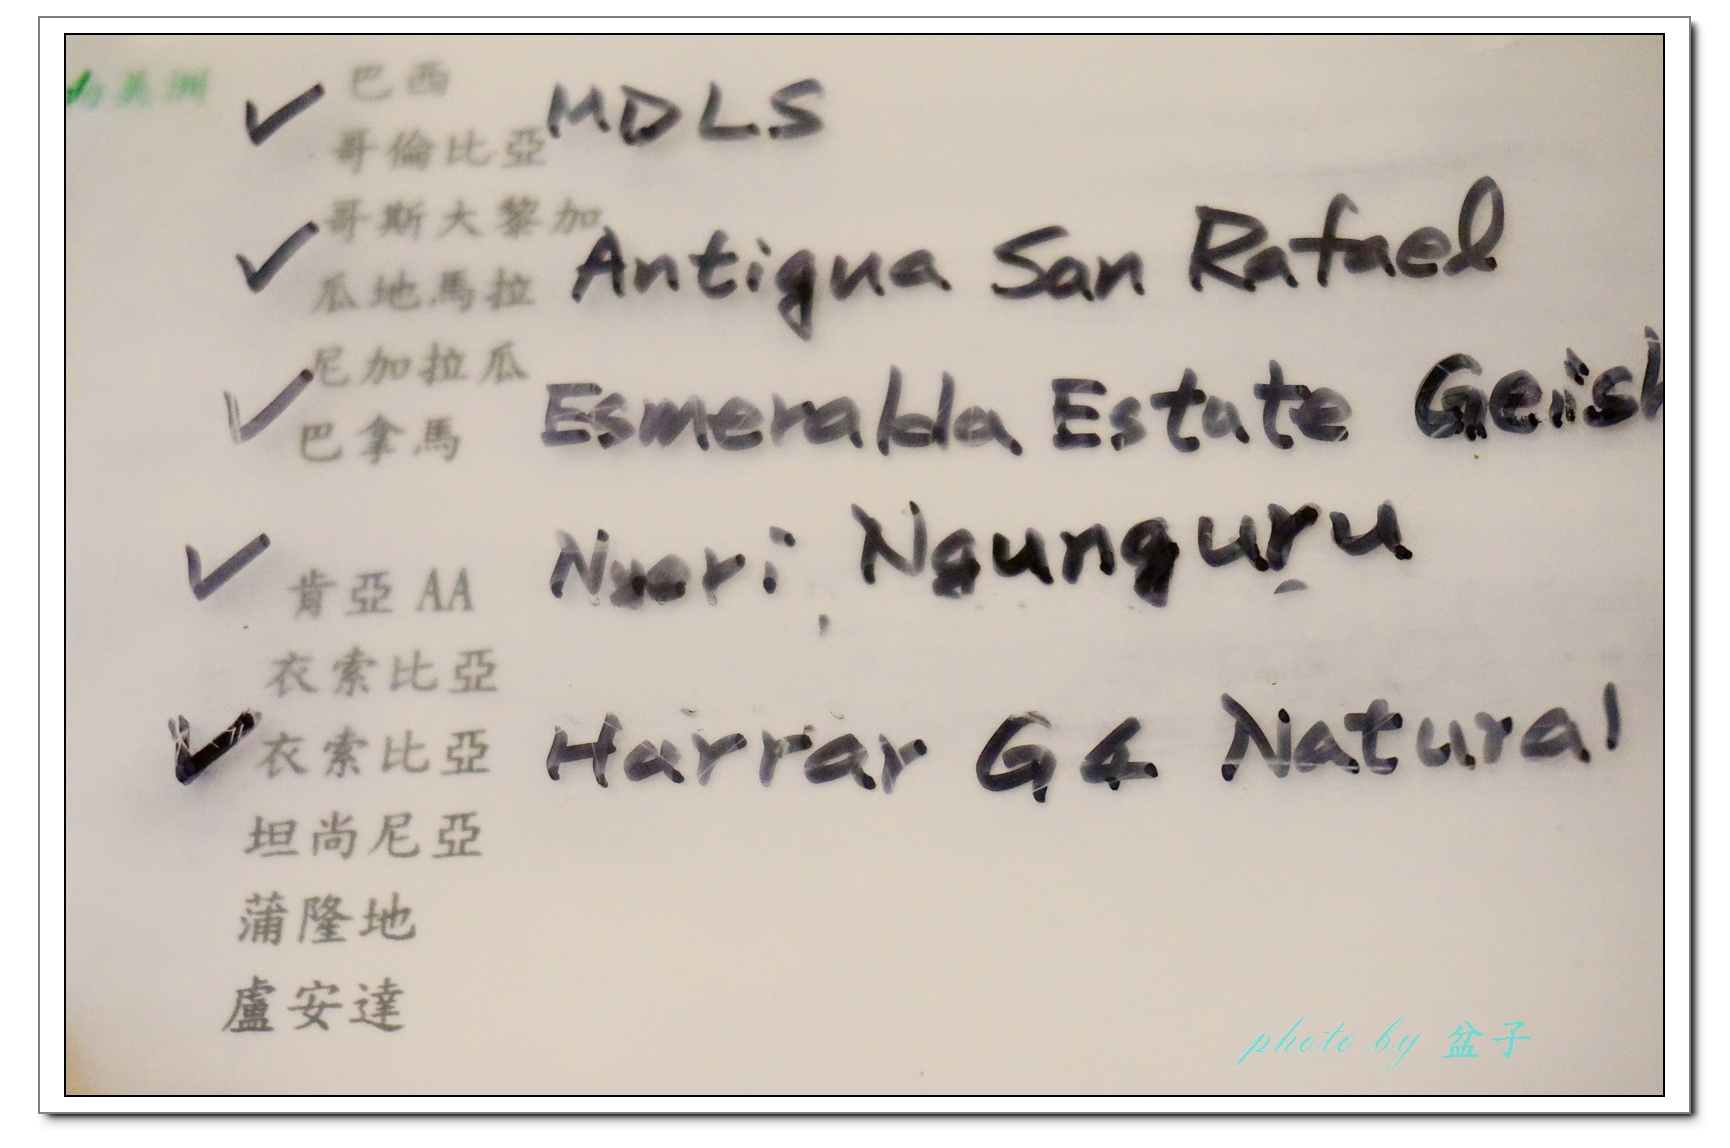 中美洲
巴西
哥倫比亞 MDLS
哥斯大黎加
瓜地馬拉 Antigua San Rafael
尼加拉瓜
巴拿馬 Esmeralda Estate Geish
肯亞 AA Nyeri Ngunguru
衣索比亞
衣索比亞 Harrar G4 Natural
坦尚尼亞
蒲隆地
盧安達
photo by 盆子